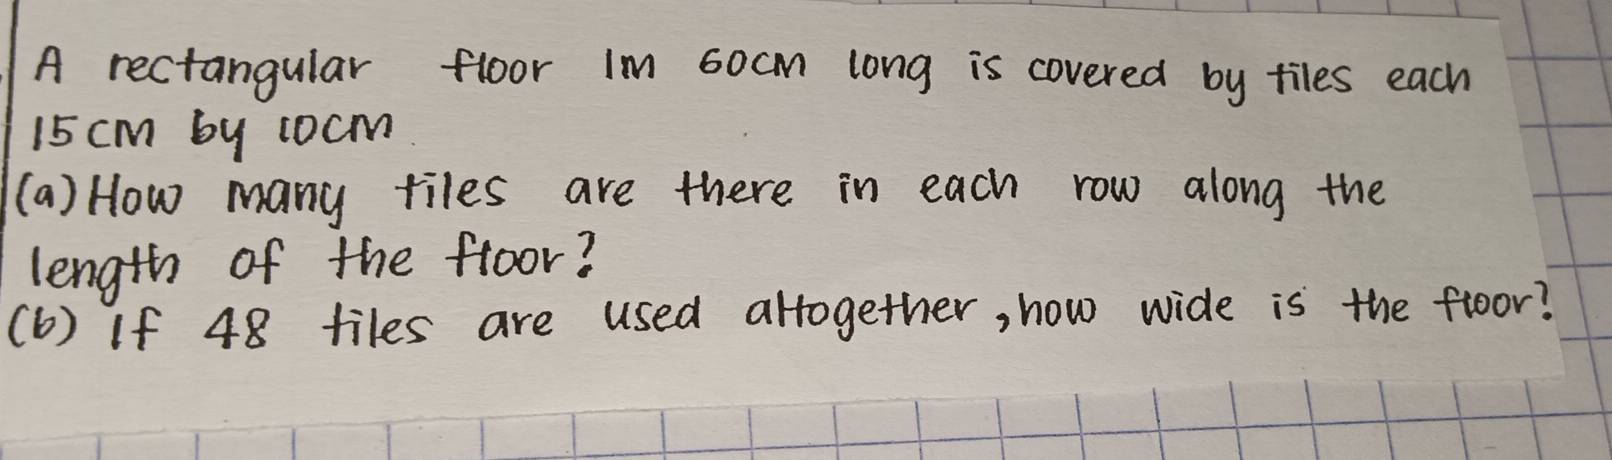 A rectangular floor 1m 60cm long is covered by tiles each
15cm by 10cm.
(a) How many tiles are there in each row along the
length of the floor?
(b) If 48 tiles are used altogether, how wide is the floor?